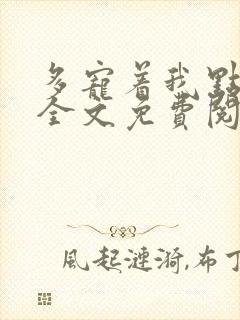 多寵着我點
全文免費閱
風起漣漪,布丁